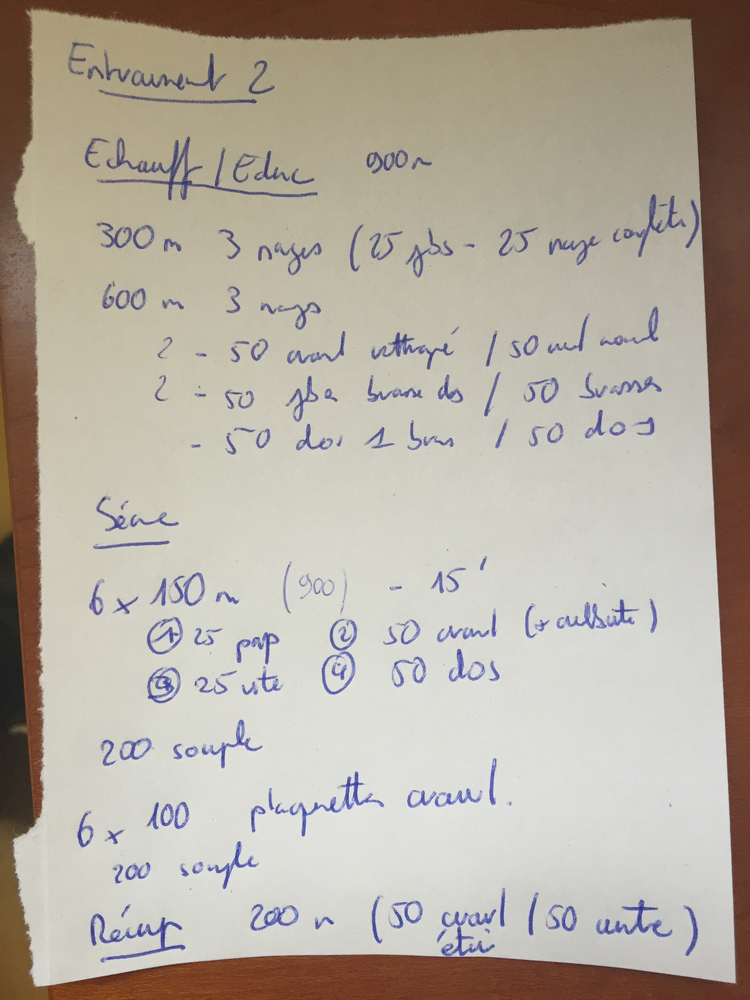 Entrainement 2
Echauff / Educ 900m
300 m 3 nages (25 jbs - 25 nage complète)
600 m 3 nages
2 - 50 crawl rattrapé / 50 crawl
2 - 50 jbes brasse dos / 50 brasses
- 50 dos 1 bras / 50 dos
Série
6 x 150 m (900) - 15'
① 25 pap ② 50 crawl (+ culbute)
③ 25 vite ④ 50 dos
200 souple
6 x 100 plaquettes crawl.
200 souple
Récup 200 m (50 crawl / 50 ventre)
étir